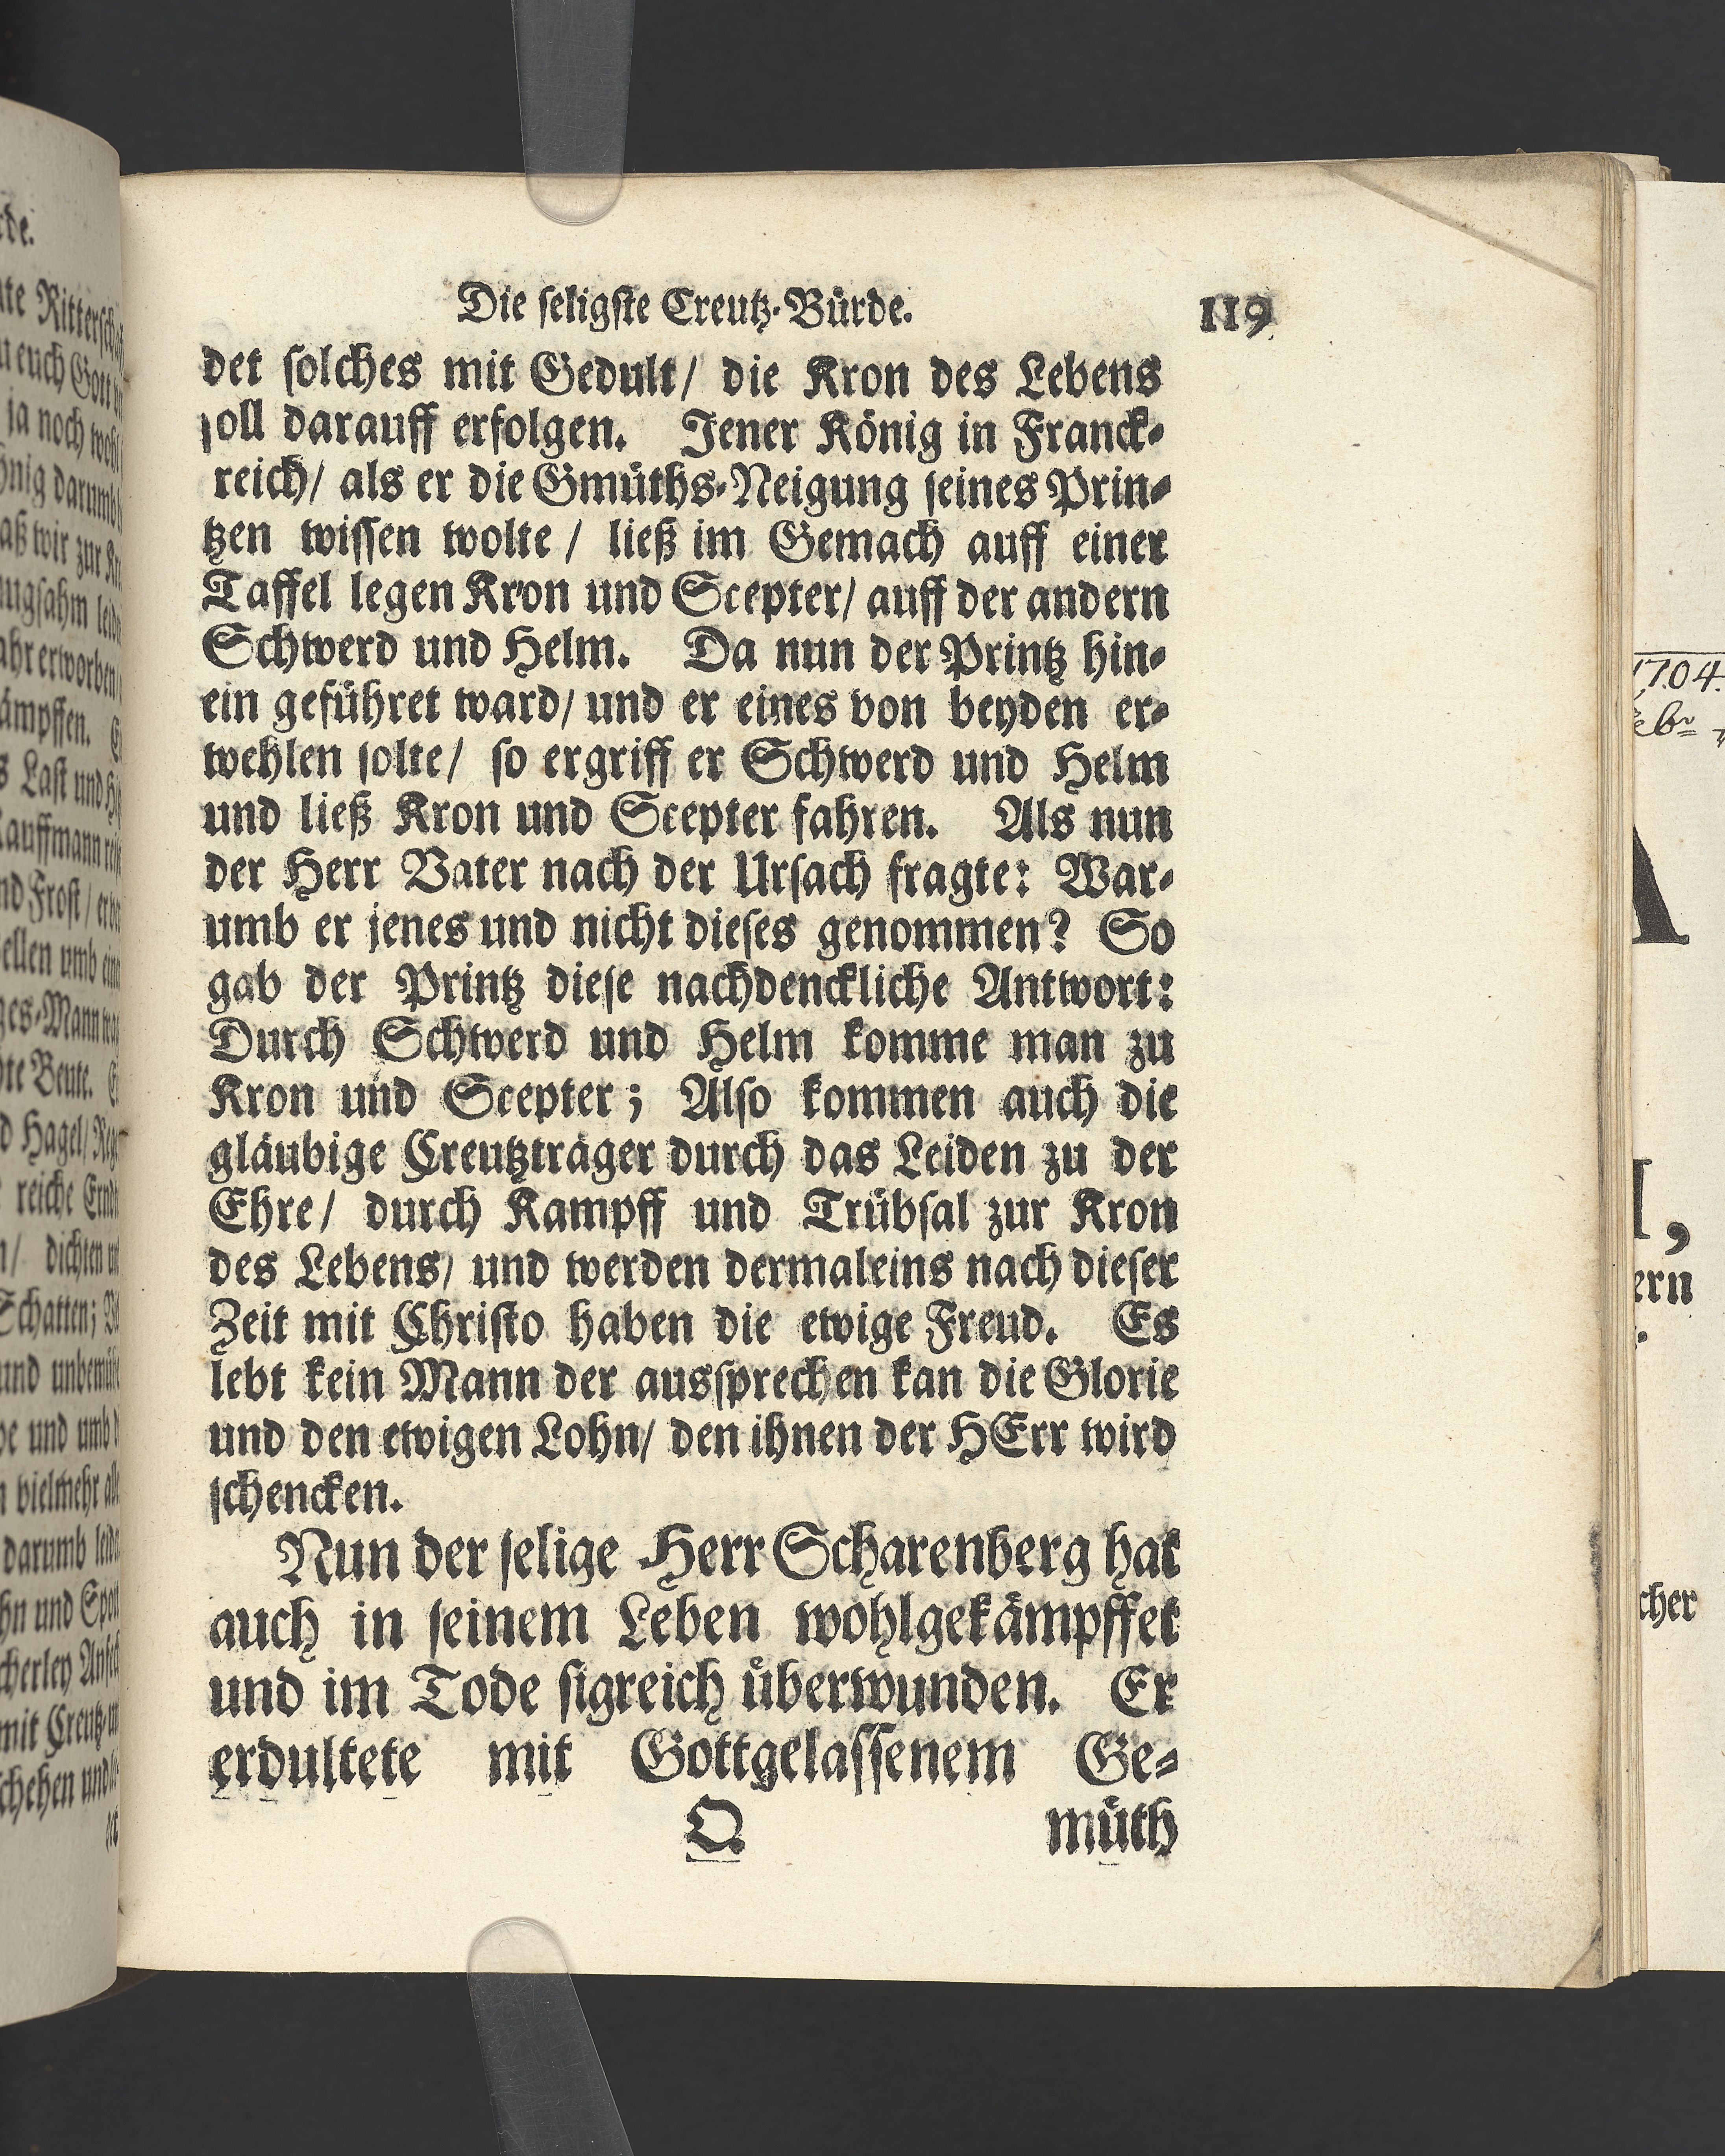 Die seligste Creutz-Bürde. 119
det solches mit Gedult/ die Kron des Lebens
soll darauff erfolgen. Jener König in Franck-
reich/ als er die Gmüths-Neigung seines Prin-
tzen wissen wolte/ ließ im Gemach auff einer
Taffel legen Kron und Scepter/ auff der andern
Schwerd und Helm. Da nun der Printz hin-
ein geführet ward/ und er eines von beyden er-
wehlen solte/ so ergriff er Schwerd und Helm
und ließ Kron und Scepter fahren. Als nun
der Herr Vater nach der Ursach fragte: War-
umb er jenes und nicht dieses genommen? So
gab der Printz diese nachdenckliche Antwort:
Durch Schwerd und Helm komme man zu
Kron und Scepter; Also kommen auch die
gläubige Creutzträger durch das Leiden zu der
Ehre/ durch Kampff und Trübsal zur Kron
des Lebens/ und werden dermaleins nach dieser
Zeit mit Christo haben die ewige Freud. Es
lebt kein Mann der aussprechen kan die Glorie
und den ewigen Lohn/ den ihnen der HErr wird
schencken.
Nun der selige Herr Scharenberg hat
auch in seinem Leben wohlgekämpffet
und im Tode sigreich überwunden. Er
erdultete mit Gottgelassenem Ge-
Q müth
1704.